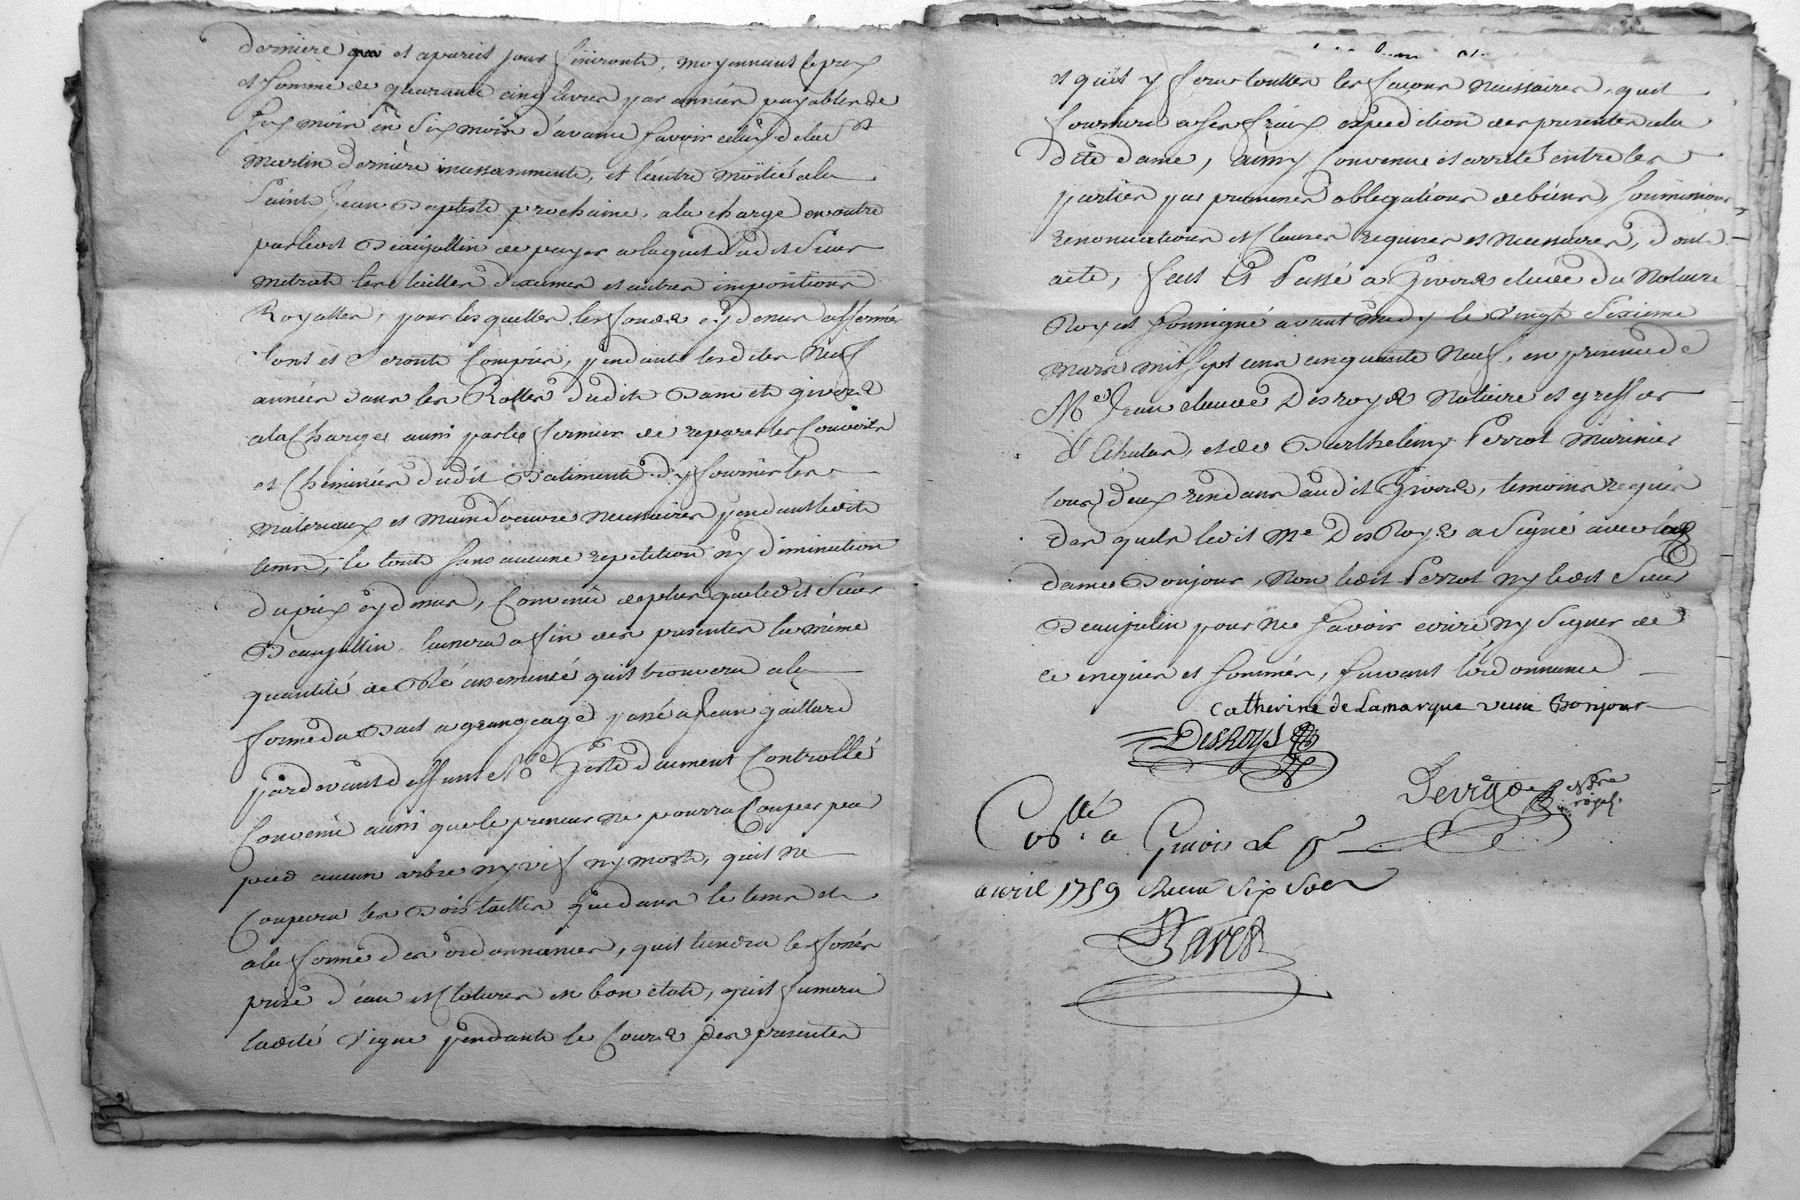 derniere et a pareil jour finironte, moyennant le prix
et somme de quarante cinq livres par année payables de
six mois en six mois d'avance savoir celuy de la St
Martin derniere incessamment, et l'autre moitié a la
Sainte Jean Baptiste prochaine, a la charge en outre
par ledit Beaujollin de payer a laquit dudit Sieur
les tailles dixiemes et autres impositions
Royalles, pour lesquelles les fonds cy devant affermé
sont et seronte compris, pendante lesdites neuf
années dans les Rolles dudit Bans et givord
a la Charge aussi par le fermier de reparer les Couverts
et Cheminées dudit Batimente d'y fournir les
materiaux et main doeuvre necessaires pendant ledit
tems, le toute sans aucune repetition ny diminution
du prix cy dessus, Convenu de plus que ledit Sieur
Beaujollin laissera a fin des presentes la même
quantité de Blé ensemencé quil trouvera a la
forme du Bail a grangeage passé a Jean gaillard
pardevante deffunt Me Geste duement Controllé
Convenu aussi que le preneur ne pourra Couper par
pied aucun arbre ny vif ny morte, quil ne
Coupera les Bois taillis que dans le tems et
a la forme des ordonnances, quil tiendra les fossés
prise d'eau et Clotures en bon etate, quil fumera
ladite Vigne pendante le Cours des presentes
et quil y fera touttes les façons necessaires, quil
fournira a ses fraix expedition des presentes a la
dite dame, ainsy convenu et arreté entre les
parties par promesses obligations de biens, soumissions
renonciations et Clauses requises et necessaires, dont
acte, fait et Passé a Givord etude du Notaire
Royal soussigné avant midy le Vingt Sixieme
mars mil sept cens cinquante neuf, en presence de
Me Jean claude Desroys Notaire et greffier
d'Echalas, et de Barthelemy Perrot Marinier
tous deux residans audit Givord, temoins requis
des quels ledit Me Des Roys a signé avec lad
dame Bonjour, Non ledit Perrot ny ledit Sieur
Beaujolin pour ne savoir ecrire ny signer de
ce enquis et sommés, suivant l'ordonnance
Catherine de Lamarque veuve Bonjour
DesRoys
Collé a Givors le pr
avril 1759 Recu Six Sols